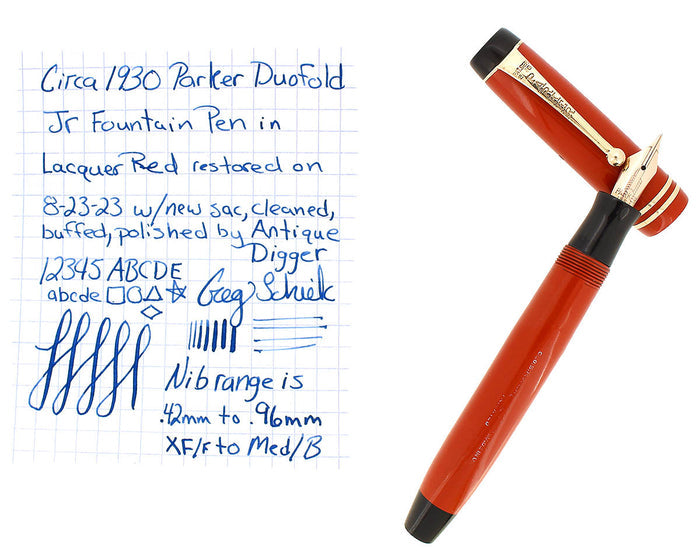 Circa 1930 Parker Duofold
Jr Fountain Pen in
Lacquer Red restored on
8-23-23 w/new sac, cleaned,
buffed, polished by Antique
Digger
12345 ABCDE
abcde
Greg Schiek
Nib range is
.42mm to .96mm
XF/F to Med/B